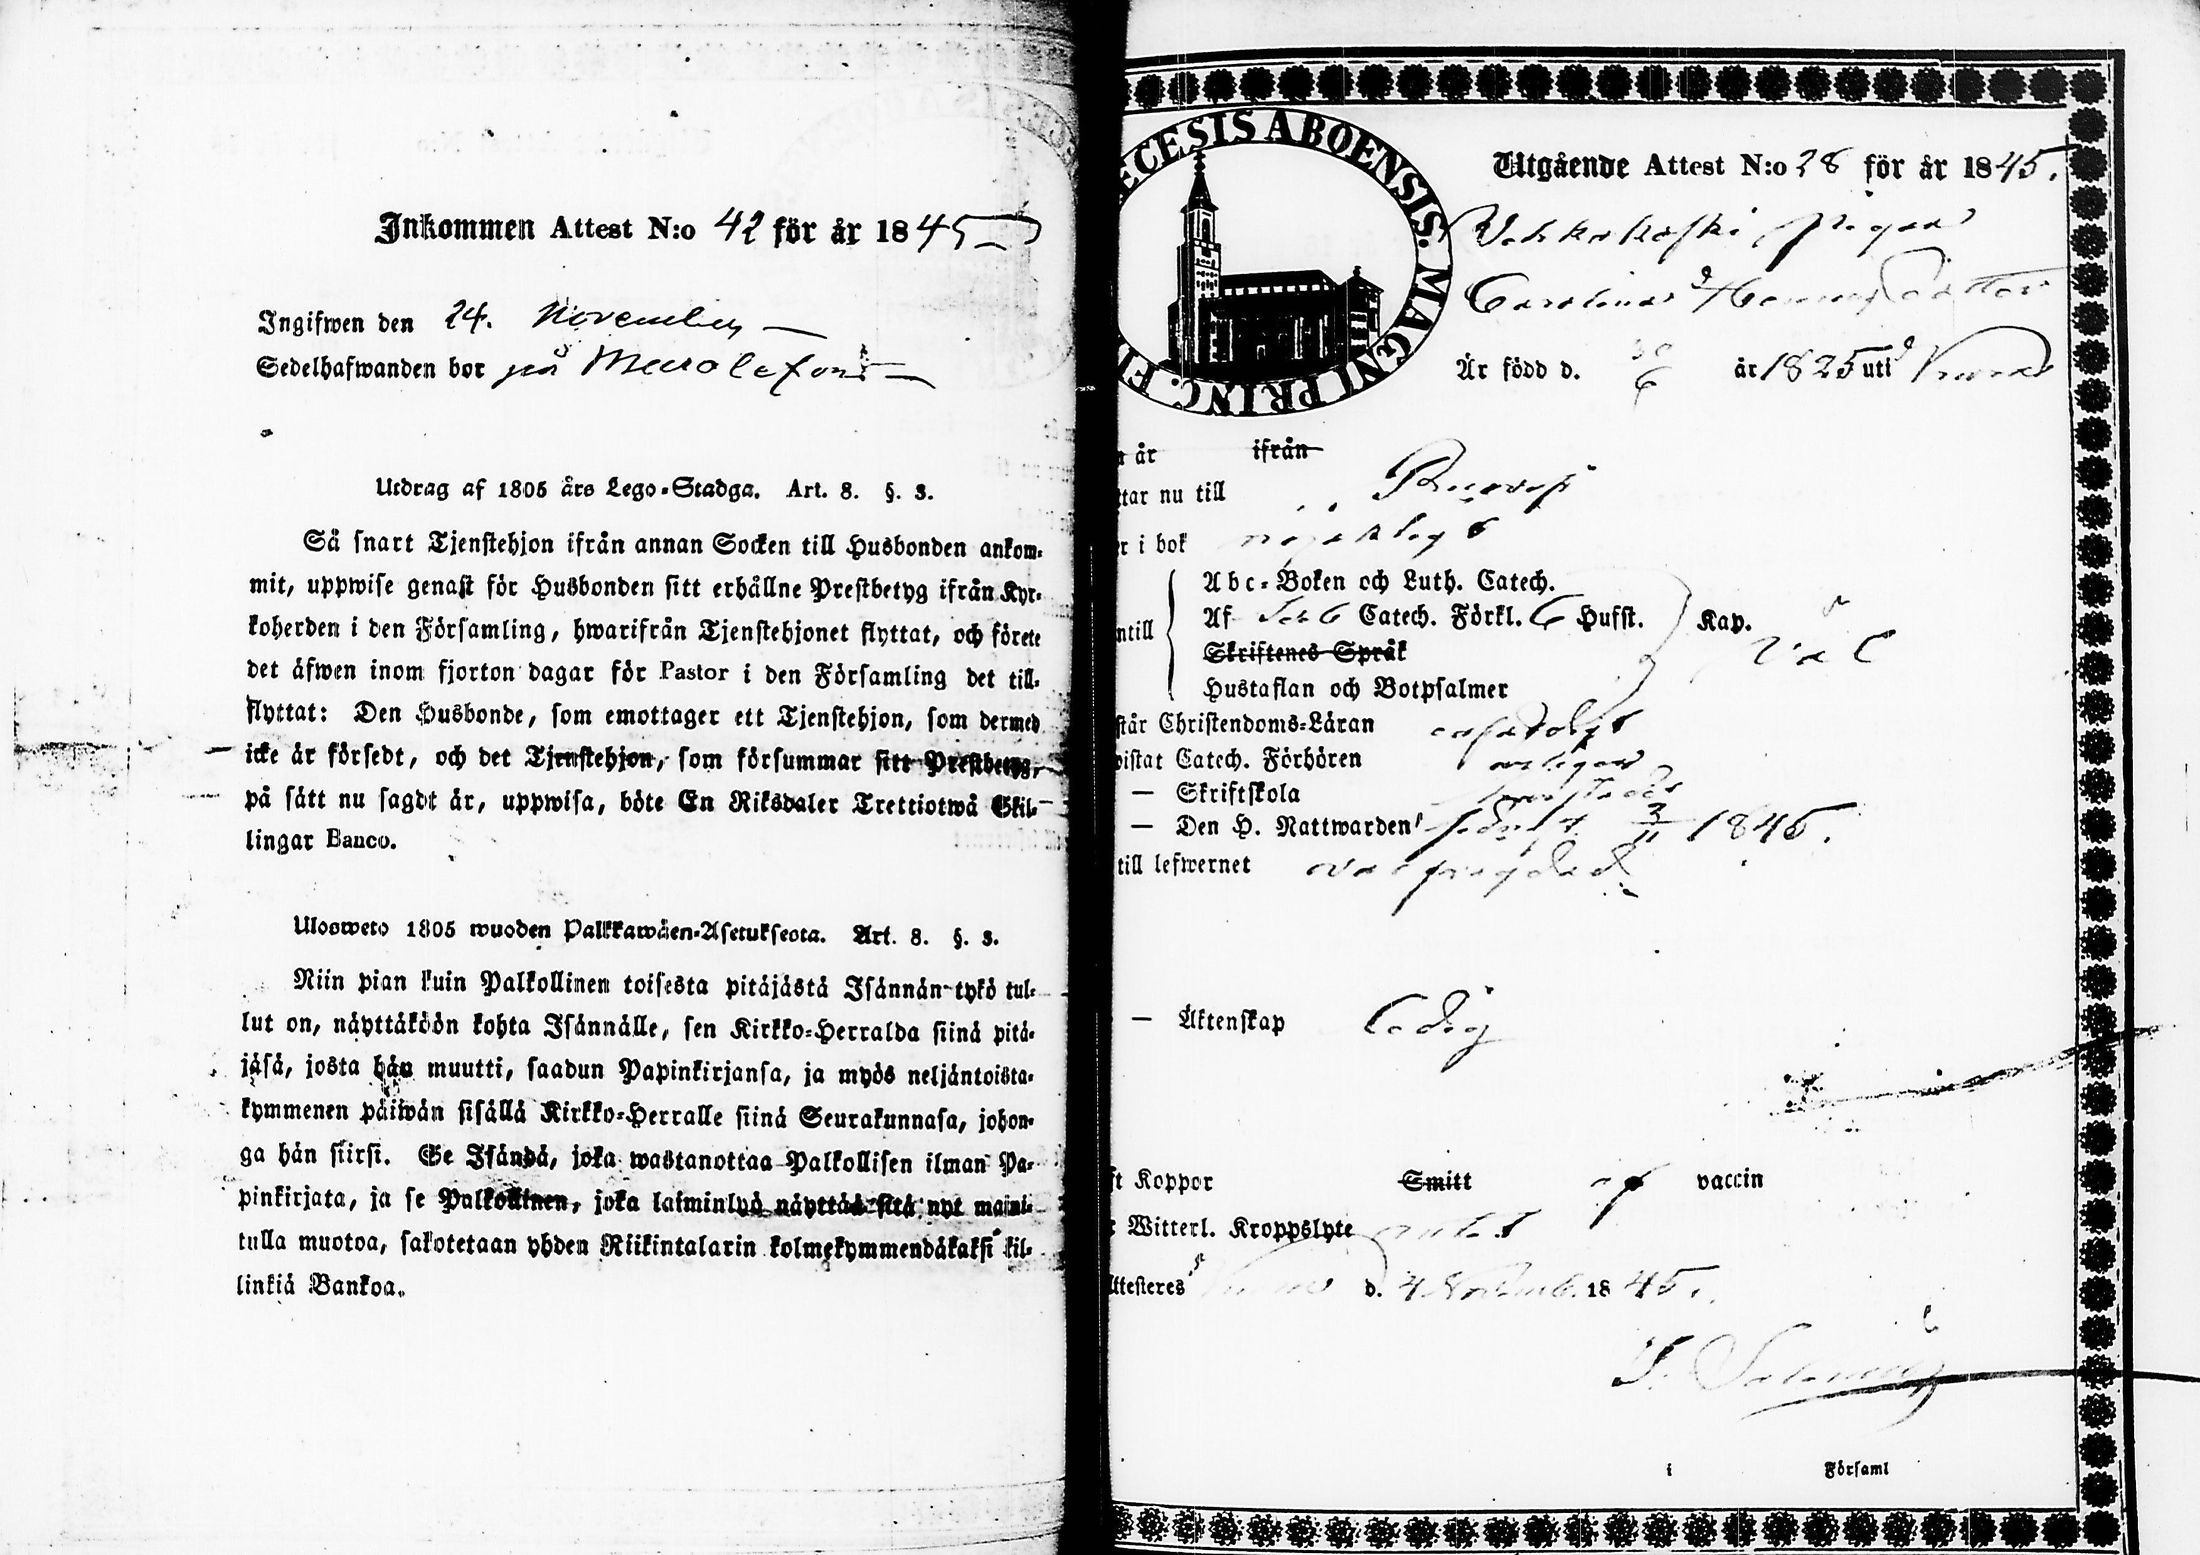 Inkommen Attest N:o 42 för år 1845
Ingifwen den 24. November
Sedelhafwanden bor på
Utdrag af 1805 års Lego-Stadga. Art. 8. §. 3.
Så snart Tjenstehjon ifrån annan Socken till Husbonden ankom-
mit, uppwise genast för Husbonden sitt erhållne Prestbetyg ifrån Kyr-
koherden i den Församling, hwarifrån Tjenstehjonet flyttat, och förete
det äfwen inom fjorton dagar för Pastor i den Församling det till-
flyttat: Den Husbonde, som emottager ett Tjenstehjon, som dermed
icke är försedt, och det Tjenstehjon, som försummar sitt Prestbetyg,
på sätt nu sagdt är, uppwisa, böte En Riksdaler Trettiotwå Skil-
lingar Banco.
Ulosweto 1805 wuoden Palkkawäen-Asetuksesta. Art. 8. §. 3.
Niin pian kuin Palkollinen toisesta pitäjästä Isännän tykö tul-
lut on, näyttäköön kohta Isännälle, sen Kirkko-Herralda siinä pitä-
jäsä, josta hän muutti, saadun Papinkirjansa, ja myös neljäntoista-
kymmenen päiwän sisällä Kirkko-Herralle siinä Seurakunnasa, johon-
ga hän siirsi. Se Isändä, joka wastanottaa Palkollisen ilman Pa-
pinkirjata, ja se Palkollinen, joka laiminlyö näyttää sitä nyt maini-
tulla muotoa, sakotetaan yhden Riikintalarin kolmekymmendäkaksi kil-
linkiä Bankoa.
ECESIS ABOENSIS. MAGNI PRINC. FI
Utgående Attest N:o 28 för år 1845.
pigan
Carolina
Är född d. år 1825 uti
år ifrån
tar nu till
r i bok
Abc-Boken och Luth. Catech.
Af Catech. Förkl. 6 Hufst.
ntill Kap. väl
Skriftenes Språk
Hustaflan och Botpsalmer
står Christendoms-Läran
wistat Catech. Förhören
— Skriftskola
— Den H. Nattwarden 3/11 1845.
till lefwernet
— Äktenskap Ledig
ft Koppor Smitt af vaccin
r Witterl. Kroppslyte intet
Attesteres d. 4 Novemb. 1845.
i Församl